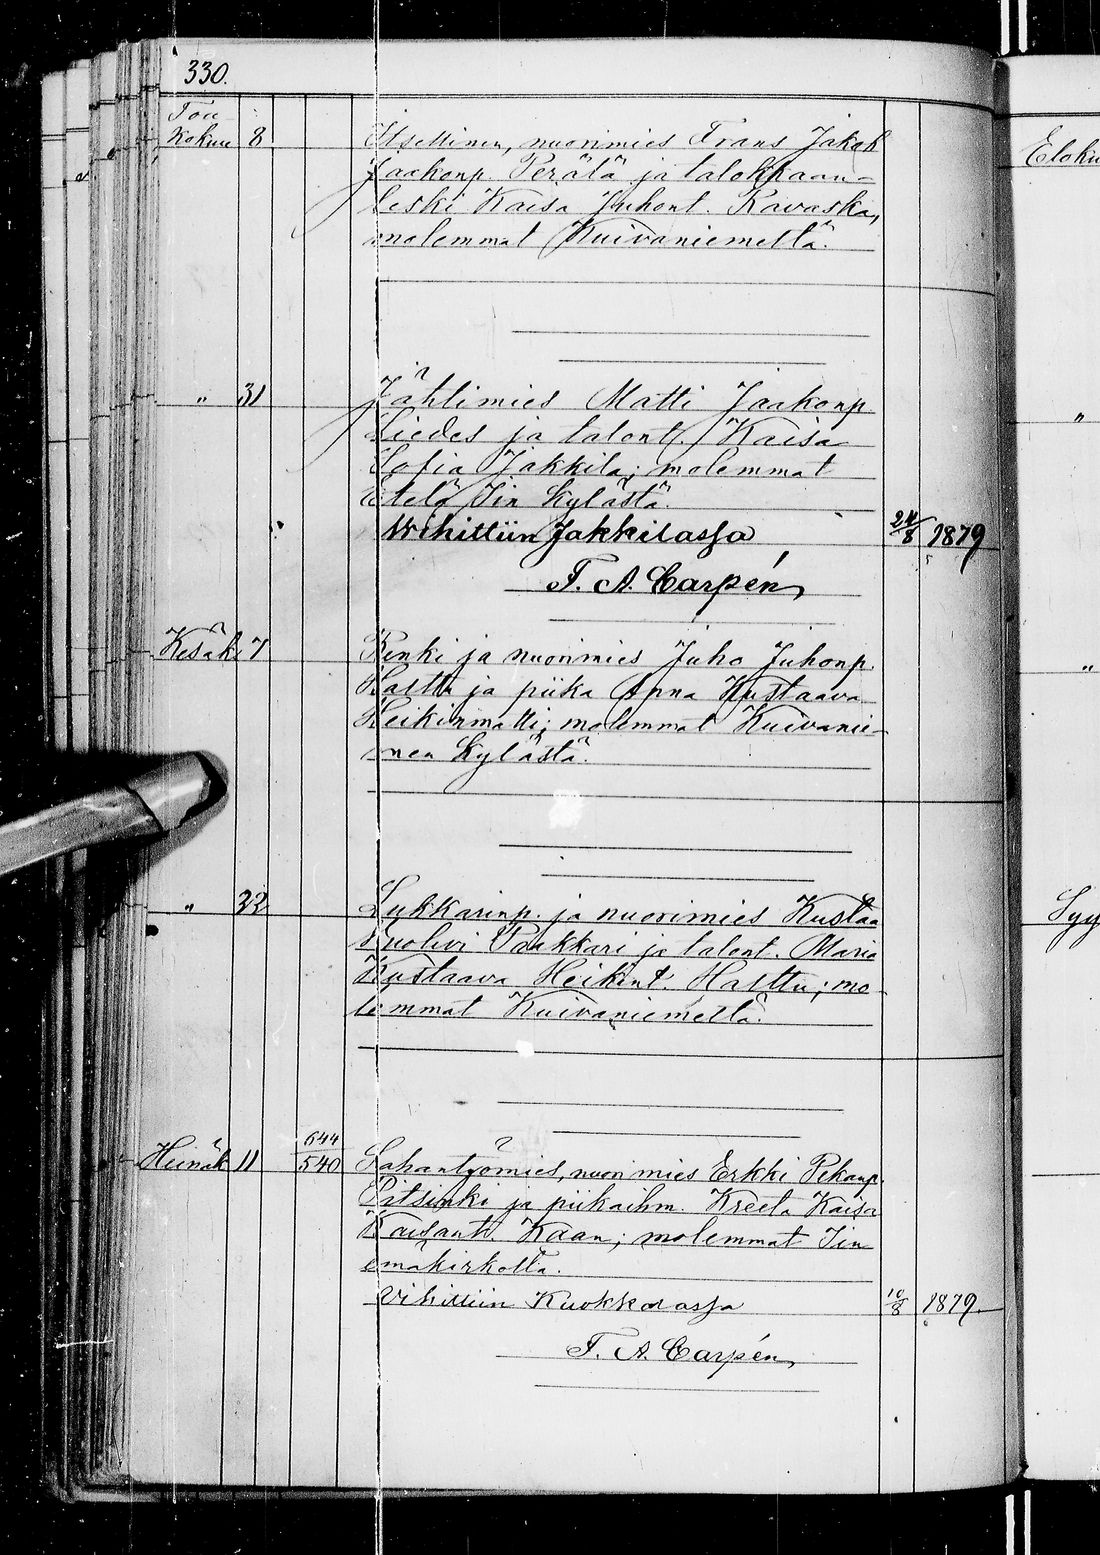 330.
Tou-
kokuu 8 Itsellinen, nuorimies Frans Jakob
Jaakonp. Perälä ja talokkaan-
leski Kaisa Juhont. Ravaska,
molemmat Kuivaniemeltä.
Eloku
„ 31 Jähtimies Matti Jaakonp.
Liedes ja talont. Kaisa
Sofia Jakkila; molemmat
Etelä Iin kylästä.
Vihittiin Jakkilassa 24/8 1879
F. A. Carpén
Kesäk. 7 Renki ja nuorimies Juho Juhonp.
Halttu ja piika Anna Kustaava
Heikinmatti; molemmat Kuivanie-
men kylästä.
„ 22 Lukkarinp. ja nuorimies Kustaa
Nuolivi Paakkari ja talont. Maria
Kustaava Heikint. Halttu; mo-
lemmat Kuivaniemeltä.
Syy
Heinäk 11 644/540 Sahantyömies, nuorimies Erkki Pekanp.
Pitsinki ja piikaihm. Kreeta Kaisa
Kaan; molemmat Iin
emäkirkolta.
Vihittiin Kuokkalassa 10/8 1879
F. A. Carpén